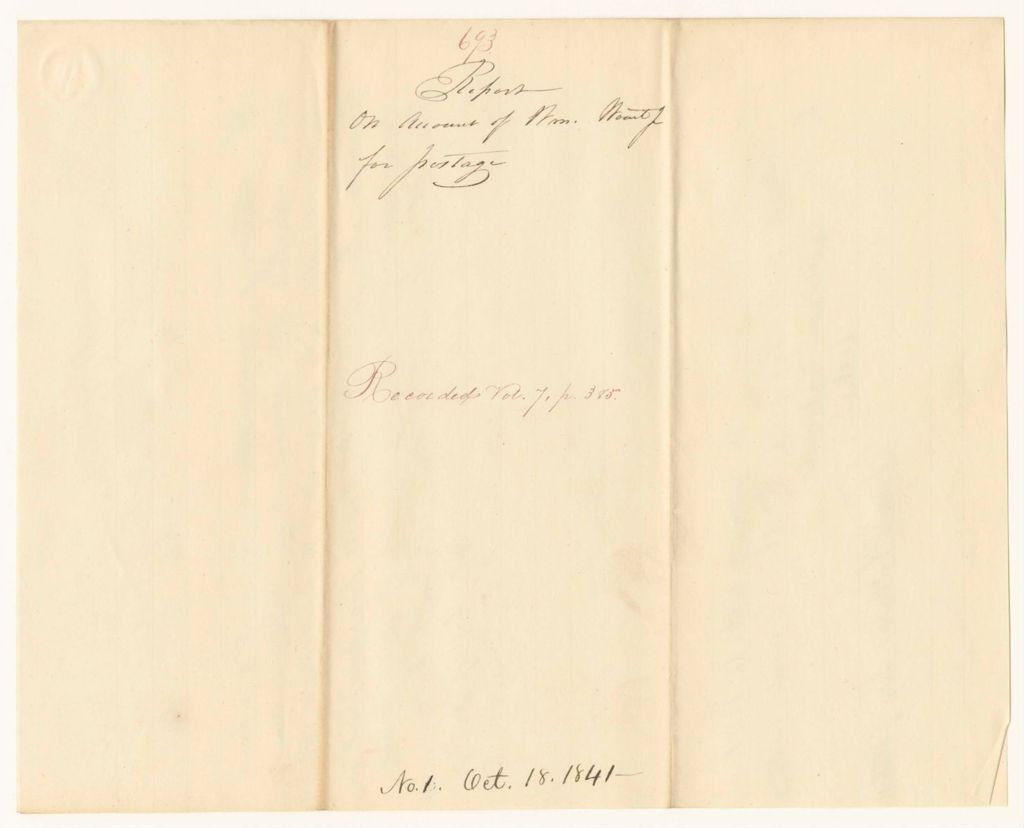 693
Report
On Account of Wm.
for postage
Recorded Vol. 7, p. 385.
No. 1. Oct. 18. 1841—